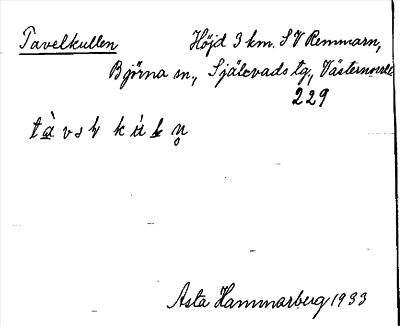 Tavelkullen Höjd 3 km. SV Remmarn,
Björna sn., Själevads tg, Västernorrl.
229
Asta Hammarberg 1933